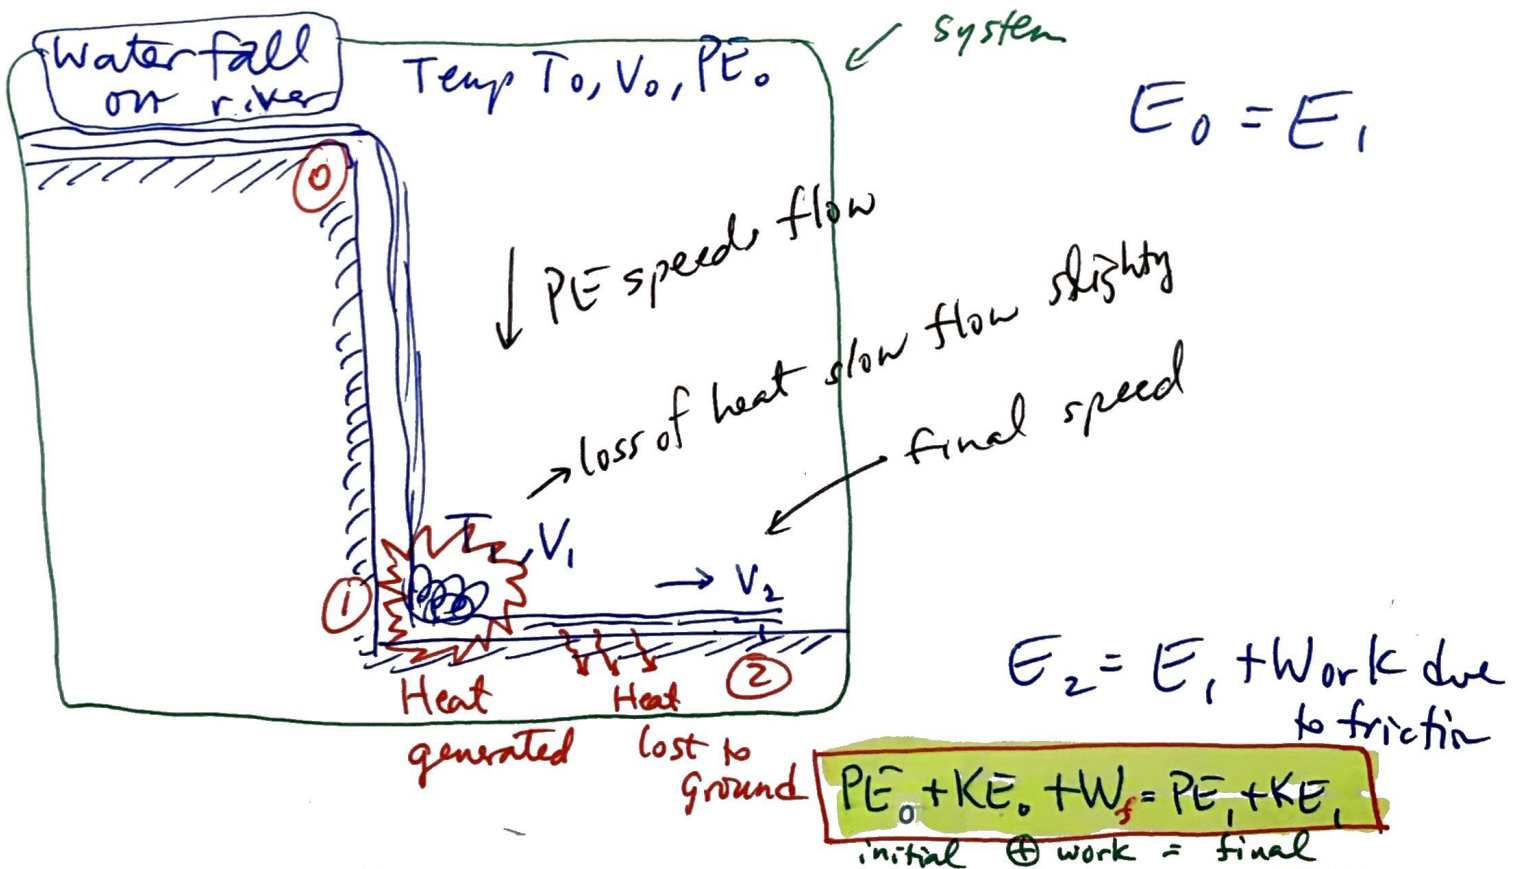 Waterfall
on river
Temp T₀, V₀, PE₀
system
E₀ = E₁
0
PE speeds flow
loss of heat slow flow slighty
final speed
T₁, V₁
1
→ V₂
2
Heat
generated
Heat
lost to
ground
E₂ = E₁ + Work due
to friction
PE₀ + KE₀ + W_f = PE₁ + KE₁
initial ⊕ work = final